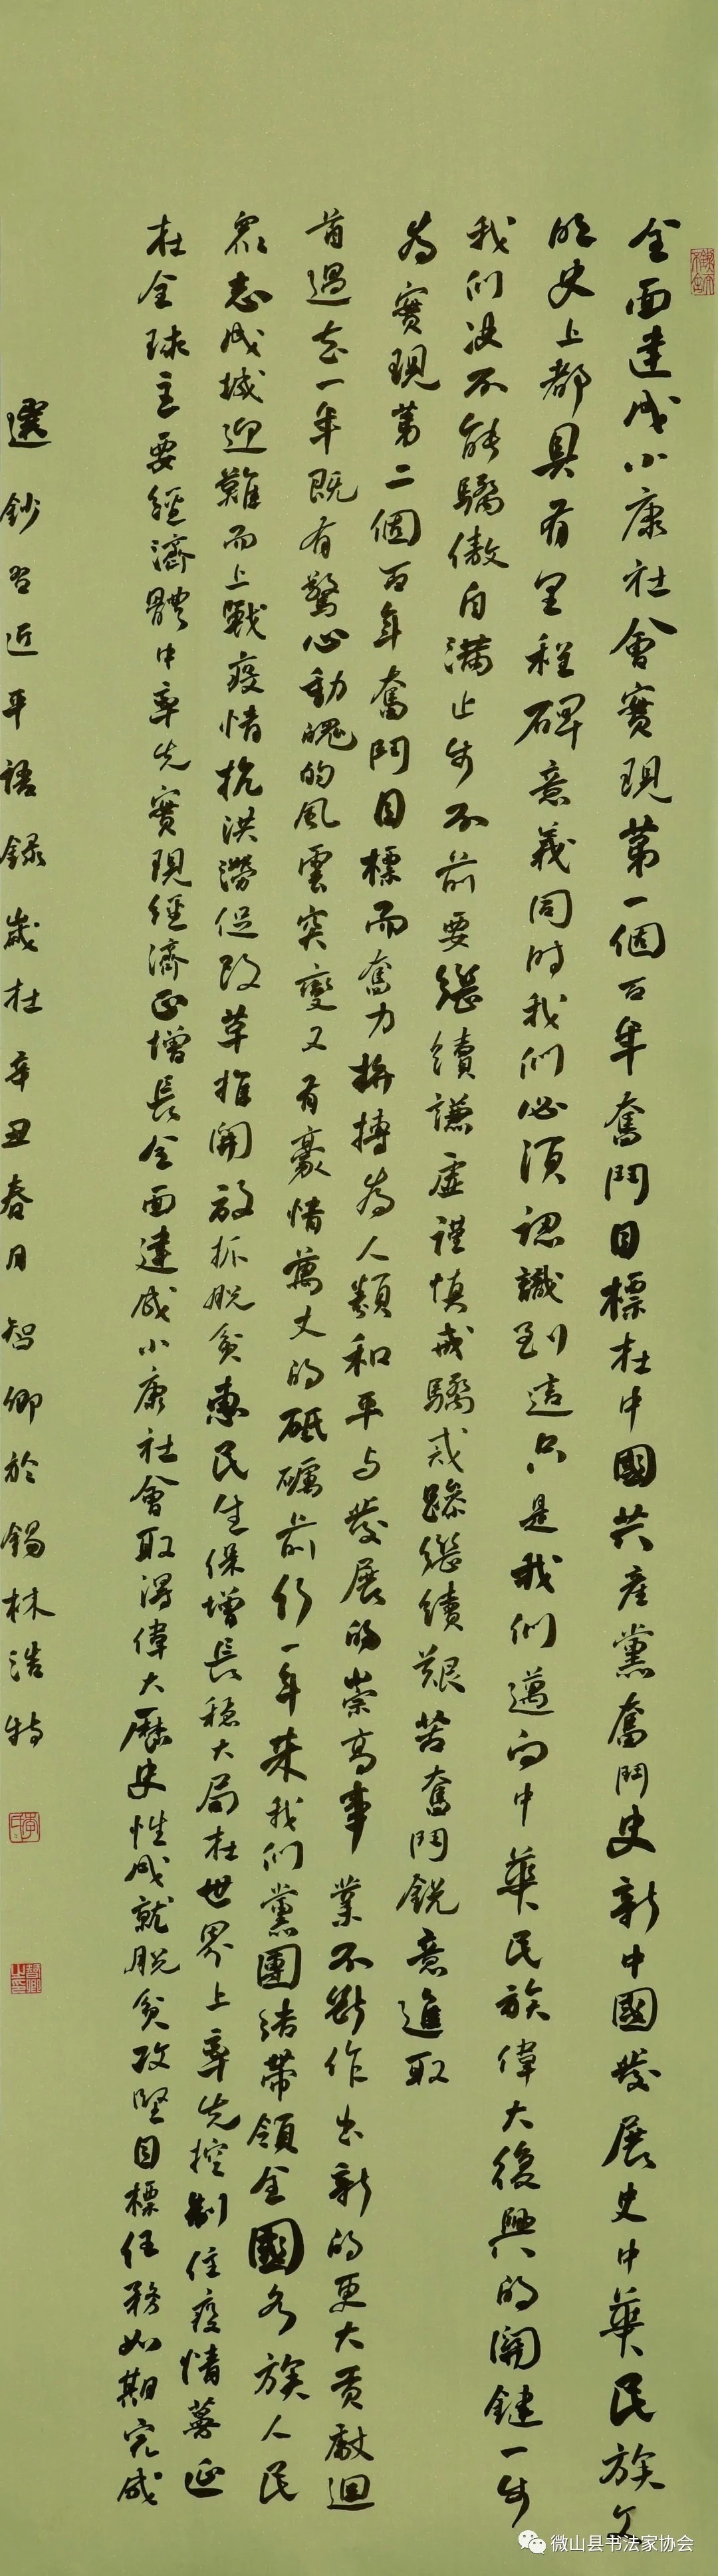 全面建成小康社會實現第一個百年奮鬥目標在中國共產黨奮鬥史新中國發展史中華民族文
明史上都具有里程碑意義同時我们必須認識到這只是我们邁向中華民族偉大復興的關鍵一步
我们決不能驕傲自滿止步不前要繼續謙虛謹慎戒驕戒躁繼續艱苦奮鬥銳意進取
為實現第二個百年奮鬥目標而奮力拚搏為人類和平与發展的崇高事業不斷作出新的更大貢獻迴
首過去一年既有驚心動魄的風雲突變又有豪情萬丈的砥礪前行一年来我们黨團結帶領全國各族人民
衆志成城迎難而上戰疫情抗洪澇促改革推開放抓脱貧惠民生保增長穩大局在世界上率先控制住疫情蔓延
在全球主要經濟體中率先實現經濟正增長全面建成小康社會取得偉大歷史性成就脱貧攻堅目標任務如期完成
選鈔習近平語錄歲在辛丑春月智卿於錫林浩特
微山县书法家协会